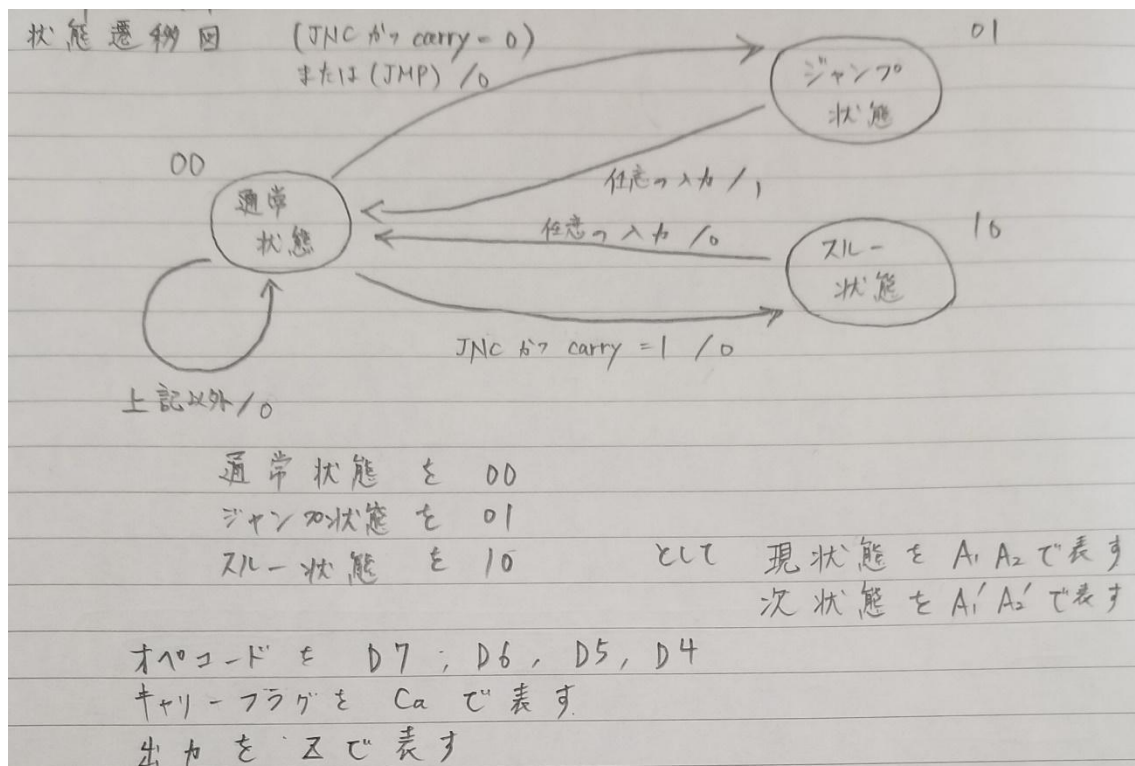 状態遷移図
(JNC かつ carry = 0)
または (JMP) /0
01
ジャンプ
状態
00
通常
状態
任意の入力 /1
任意の入力 /0
10
スルー
状態
JNC かつ carry = 1 /0
上記以外 /0
通常状態を 00
ジャンプ状態を 01
スルー状態を 10 として 現状態を A1 A2 で表す
次状態を A1' A2' で表す
オペコードを D7, D6, D5, D4
キャリーフラグを Ca で表す.
出力を Z で表す